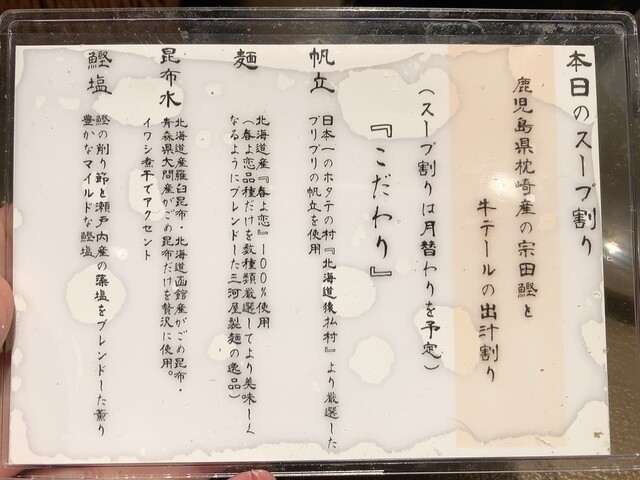 本日のスープ割り
鹿児島県枕崎産の宗田鰹と
牛テールの出汁割り
(スープ割りは月替わりを予定)
『こだわり』
帆立
日本一のホタテの村『北海道猿払村』より厳選した
プリプリの帆立を使用
麺
北海道産『春よ恋』100%使用
(春よ恋品種だけを数種類厳選してより美味しく
なるようにブレンドした三河屋製麺の逸品)
昆布水
北海道産羅臼昆布・北海道函館産がごめ昆布・
青森県大間産がごめ昆布だけを贅沢に使用。
イワシ煮干でアクセント
鰹塩
鰹の削り節と瀬戸内産の藻塩をブレンドした薫り
豊かなマイルドな鰹塩